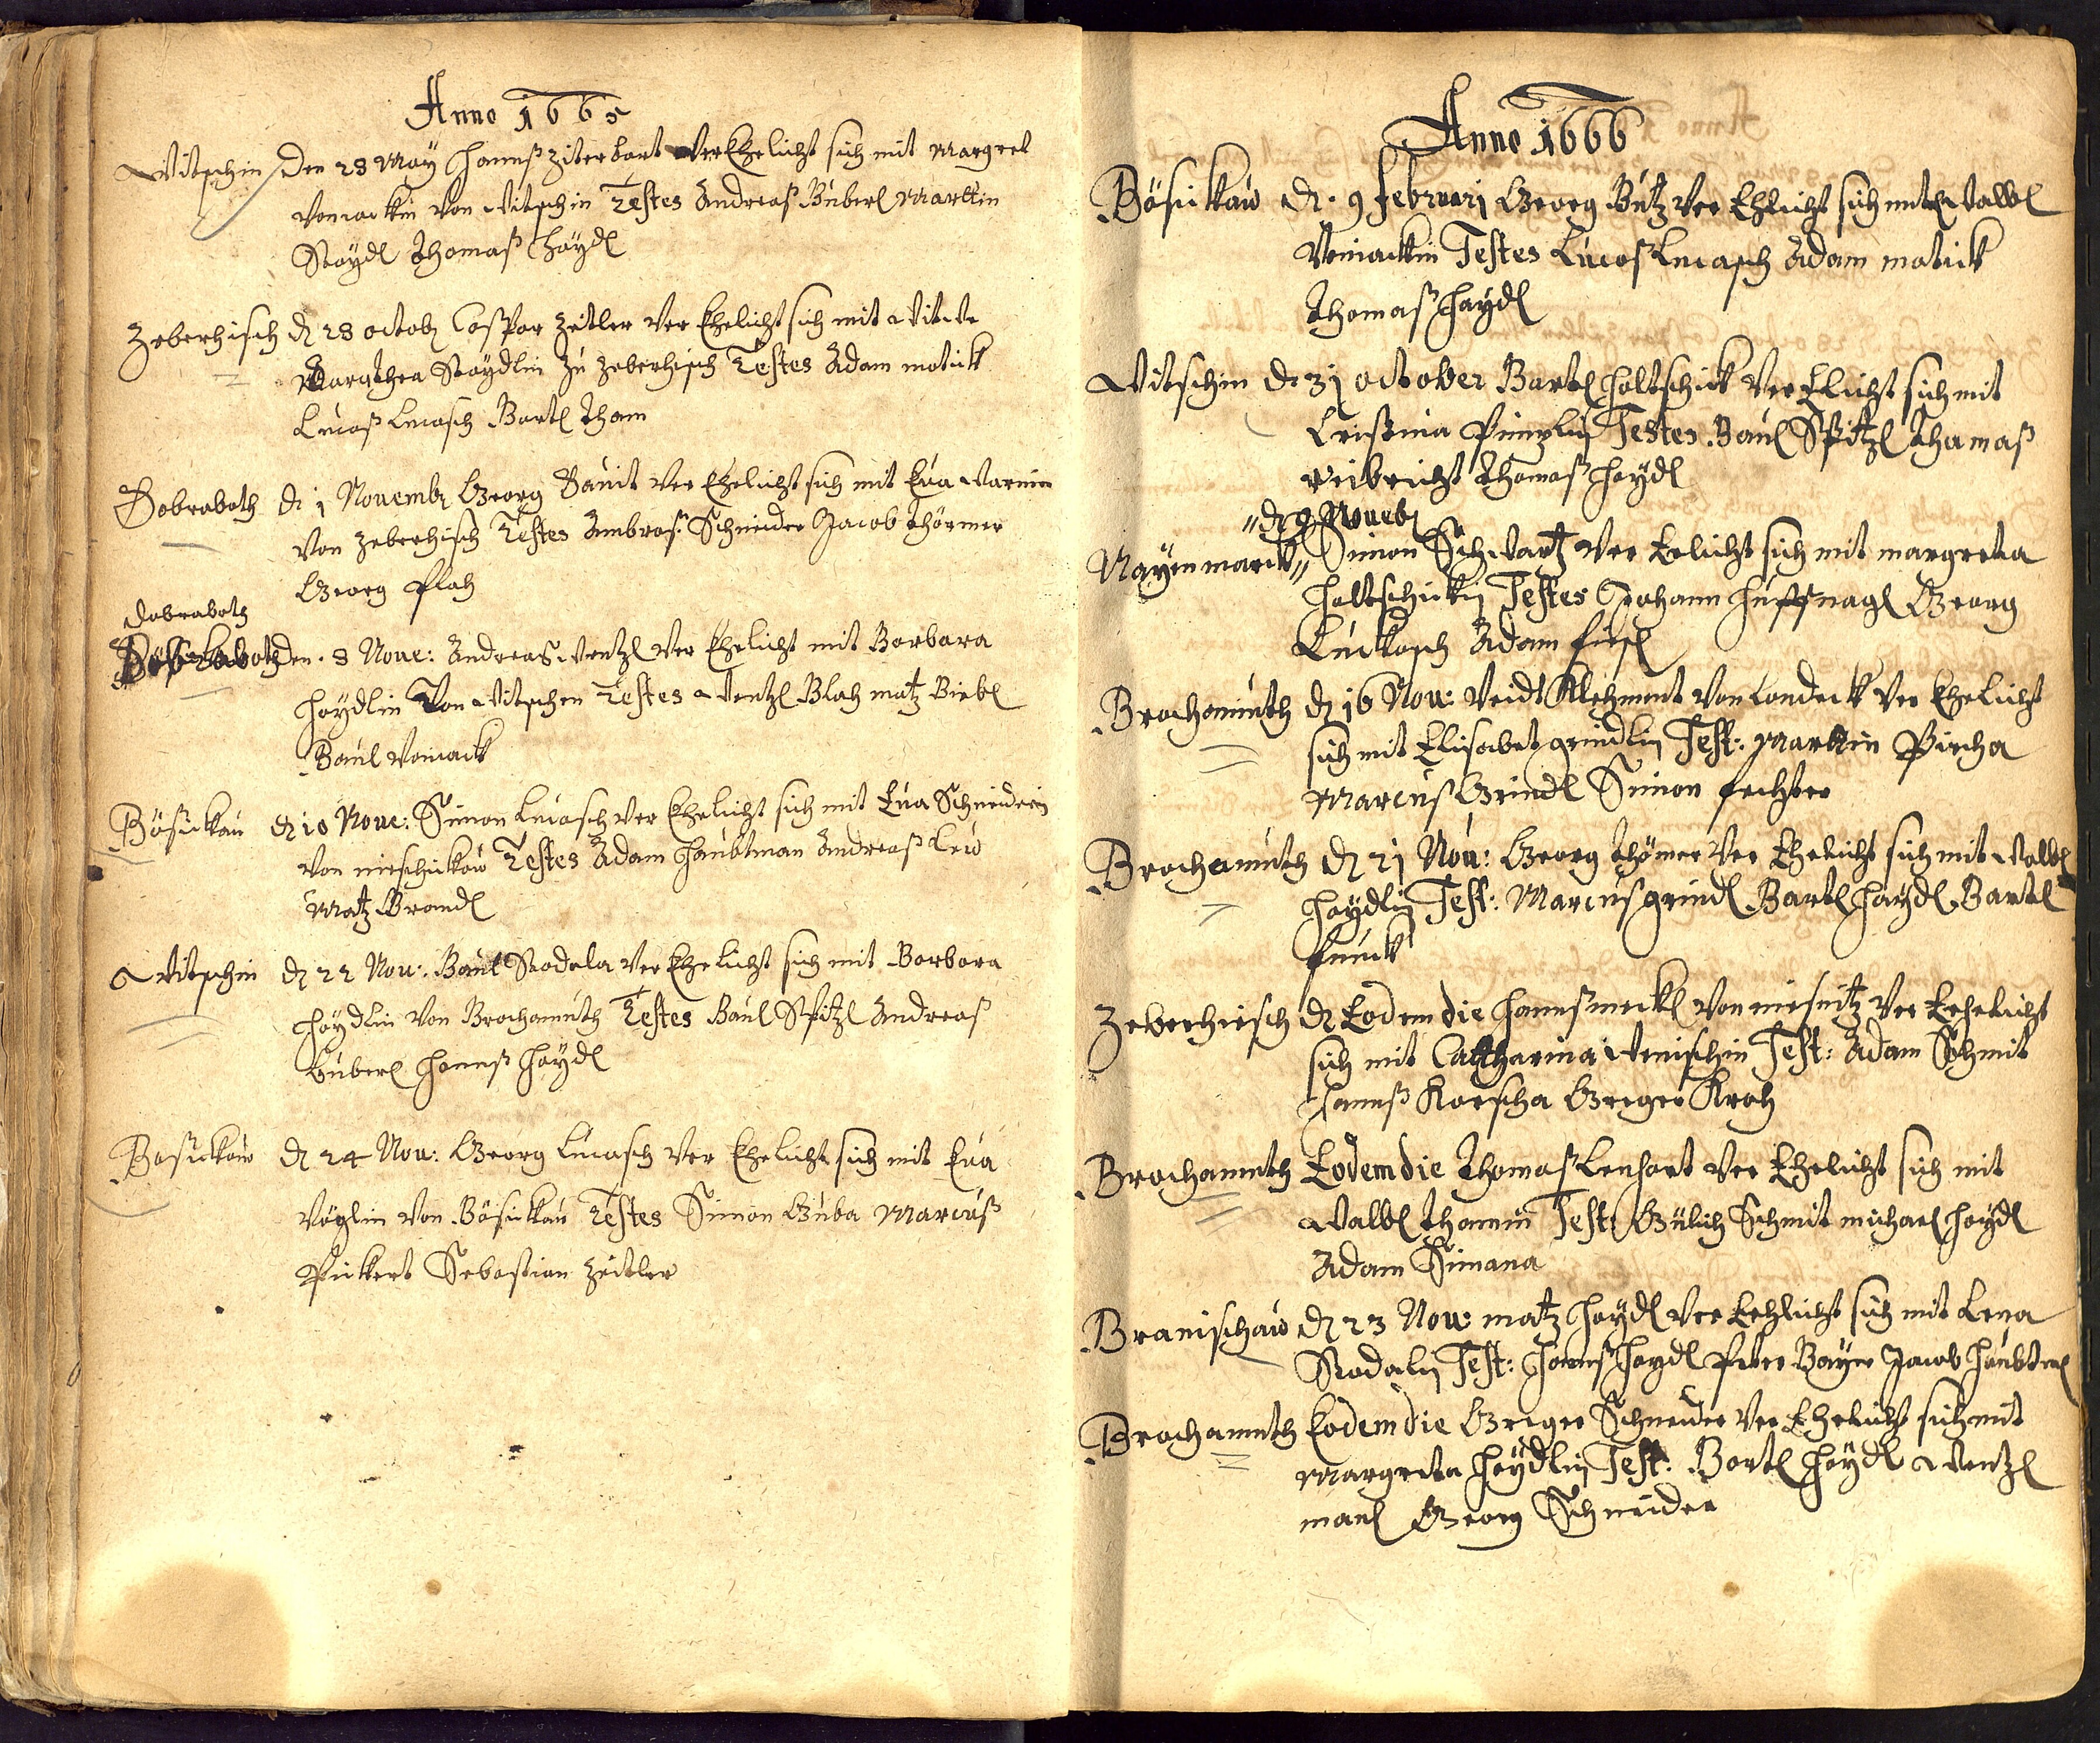 Anno 1665
Witschin den 28 May Hannß Ziterbart Ver Ehelicht sich mit Margret
Vonackin Von Witschin Testes Andreaß Buberl Marttin
Stöydl Thomaß Höydl
Zeberhisch dn 28 octob Casspar Zeitler Ver Ehelicht sich mit Witwe
Margthea Stöydlin zu Zeberhisch Testes Adam motick
Lucaß Lucasch Bartl Tham
Dobraboth dn 1 Novembr Georg Bauit Ver Ehelicht sich mit Eva
Von Zeberhisch Testes Ambros: Schneider Jacob Thörmer
Georg flah
dobraboth
den 8 Nove: Andreas Wentzl Ver Ehelicht mit Borbara
Höydlin Von Witschen Testes Wentzl Blah matz Biebl
Baul Vonack
Bösickau dn 10 Nove: Simon Lucasch Ver Ehelicht sich mit Eva Schneiderin
Von nieschickaw Testes Adam Haubtman Andreaß Lew
Matz Brandl
Witschin dn 22 Nov: Baul Stodola Ver Ehelicht sich mit Borbora
Höydlin Von Brochomuth Testes Baul Spitzl Andreas
Buberl Hanß Höydl
Bösickaw dn 24 Nov: Georg Lucasch Ver Ehelicht sich mit Eva
Vöglin Von Bösickau Testes Simon Guba Marcuß
Pickert Sebastian Zeitler
Anno 1666
Bösickaw dn 9 februarj Georg Butz Ver Ehlicht sich mit Walbl
Voniackin Testes Lucaß Lucasch Adam motick
Thomaß Haydl
Witschin dn 31 october Bartl Holtschick Ver Elicht sich mit
Cristina Testes Baul Spitzl Thamaß
Weibricht Thomaß Höydl
dn 9 Noueb
Nayenmarck Simon Schwartz Ver Eelicht sich mit margreta
Holtschickin Testes Johann Huffnagl Georg
Luckasch Adam
Brochomuth dn 16 Nov: Veidt Klehment Von Londeck Ver Ehelicht
sich mit Elisabet grindlin Test: Marttin Pircha
Marcuß Grindl Simon fechter
Brochamuth dn 21 Nov: Georg Thömer Ver Ehelicht sich mit Walbl
Höydlin Test: Marcuß grindl Bartl Haydl Bartl
funck
Zeberhiesch dn Eodem die Hannß merkl Von niesnitz Ver Eehelicht
sich mit Catharina Wenischin Test: Adam Schmit
Hannß Korscha Greger Kroh
Brochamuth Eodem die Thomaß Lenhart Ver Ehelicht sich mit
Walbl Thamin Test: Gülich Schmit michael Höydl
Adam Simana
Branischaw dn 23 Nov: matz Höydl Ver Eehlicht sich mit Lena
Stodalin Test: Hannß Hoydl Peter Bayer Jacob Haubtml
Brochamuth Eodem die Greger Schneider Ver Ehelicht sich mit
Margreta Höydlin Test: Bortl Höydl Wentzl
manl Georg Schneider